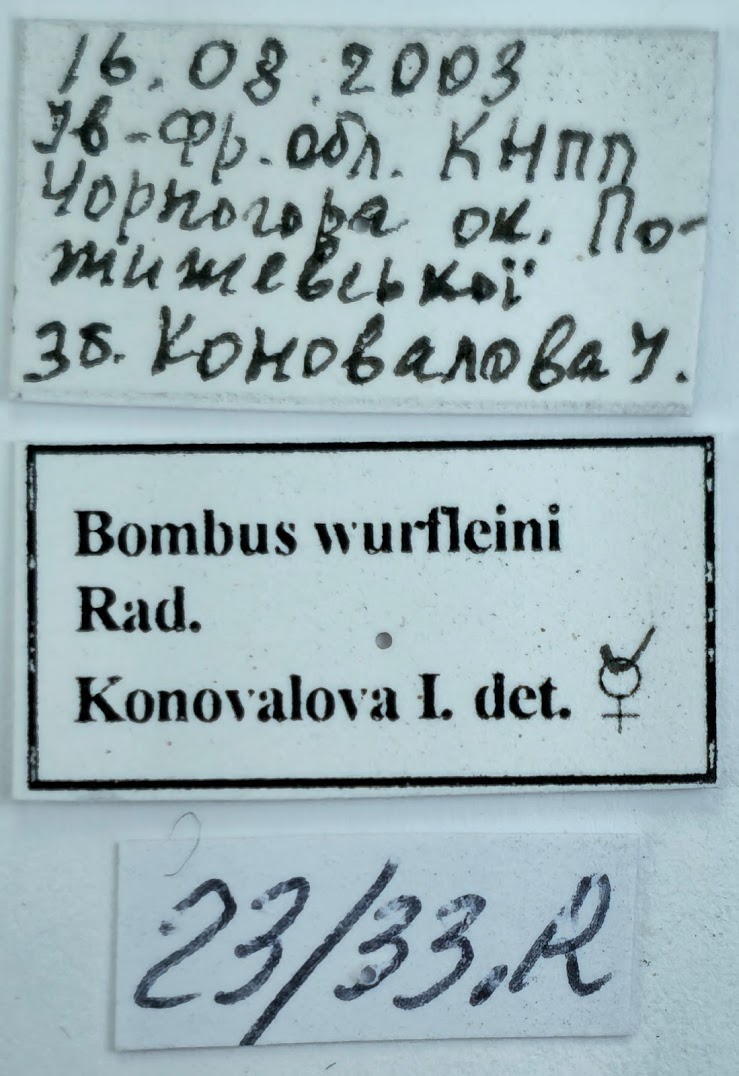 16.08.2003
Ів-Фр. обл. КНПП
Чорногора ок. По-
жижевської
Зб. Коновалова І.
Bombus wurfleini
Rad.
Konovalova I. det. ☿
23/33.R